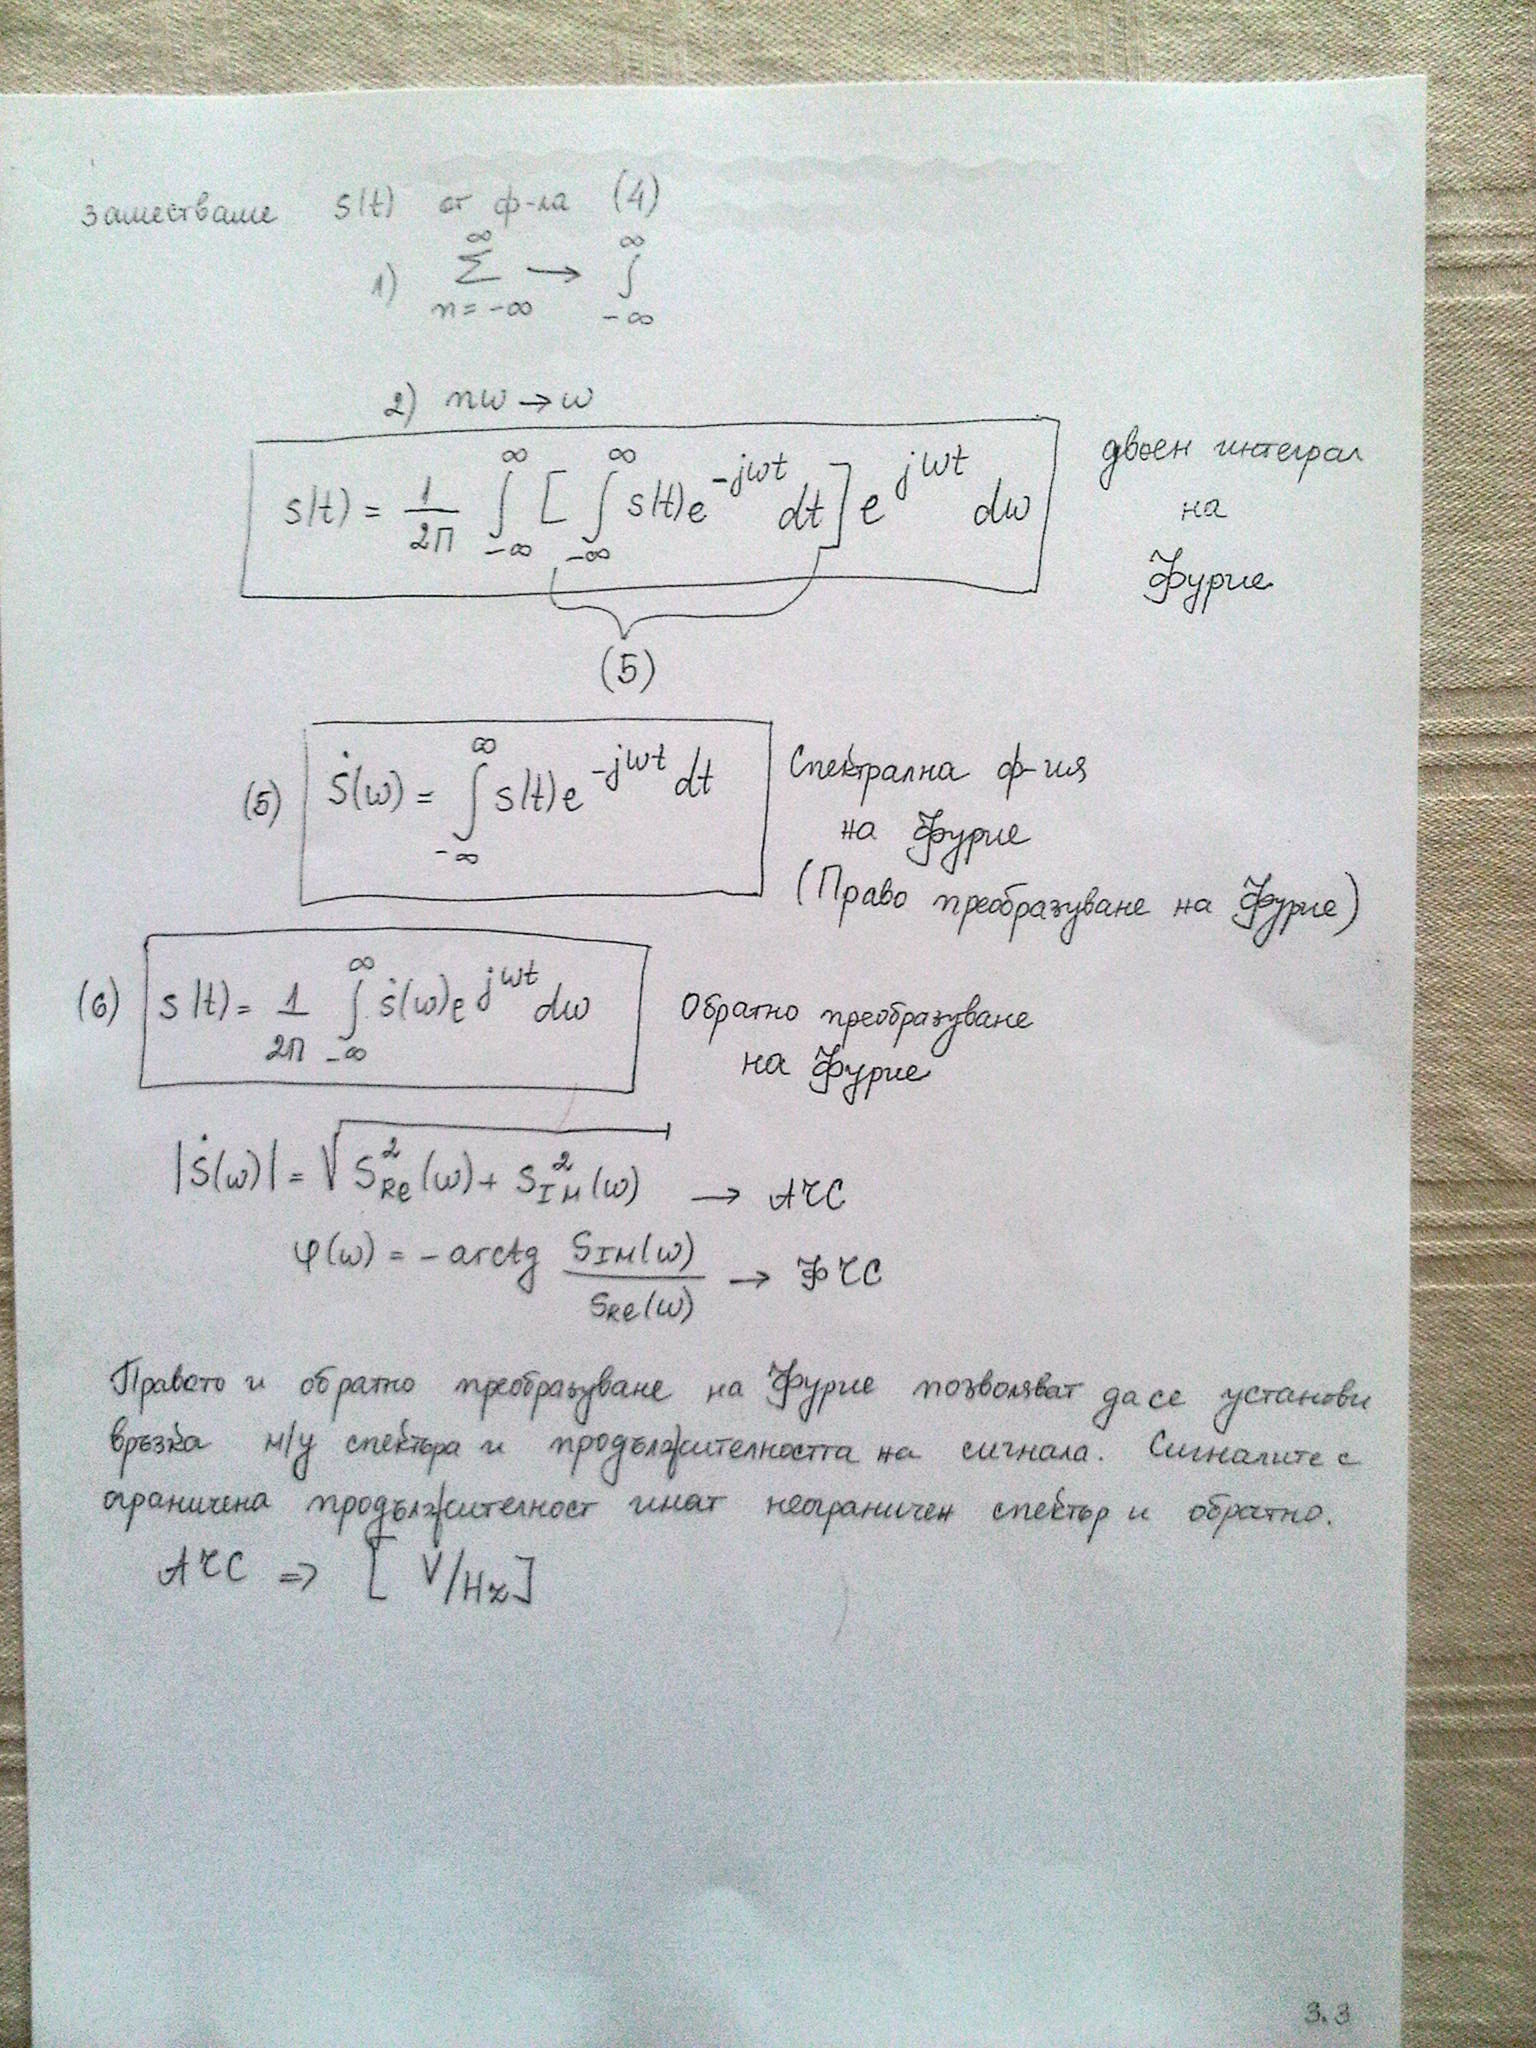 заместваме s(t) от ф-ла (4)
1) ∞ Σ n = -∞ → ∞ ∫ -∞
2) nω → ω
s(t) = 1/2П ∞ ∫ -∞ [ ∞ ∫ -∞ s(t)e^-jωt dt] e^jωt dω
двоен интеграл
на
Фурие
(5)
(5) Ṡ(ω) = ∞ ∫ -∞ s(t)e^-jωt dt
Спектрална ф-ия
на Фурие
(Право преобразуване на Фурие)
(6) s(t) = 1/2П ∞ ∫ -∞ ṡ(ω)e^jωt dω
Обратно преобразуване
на Фурие
|Ṡ(ω)| = √ S²Re(ω) + S²Iм(ω) → АЧС
φ(ω) = - arctg SIм(ω)/SRe(ω) → ФЧС
Правото и обратно преобразуване на Фурие позволяват да се установи
връзка м/у спектъра и продължителността на сигнала. Сигналите с
ограничена продължителност имат неограничен спектър и обратно.
АЧС => [ V/Hz]
3.3